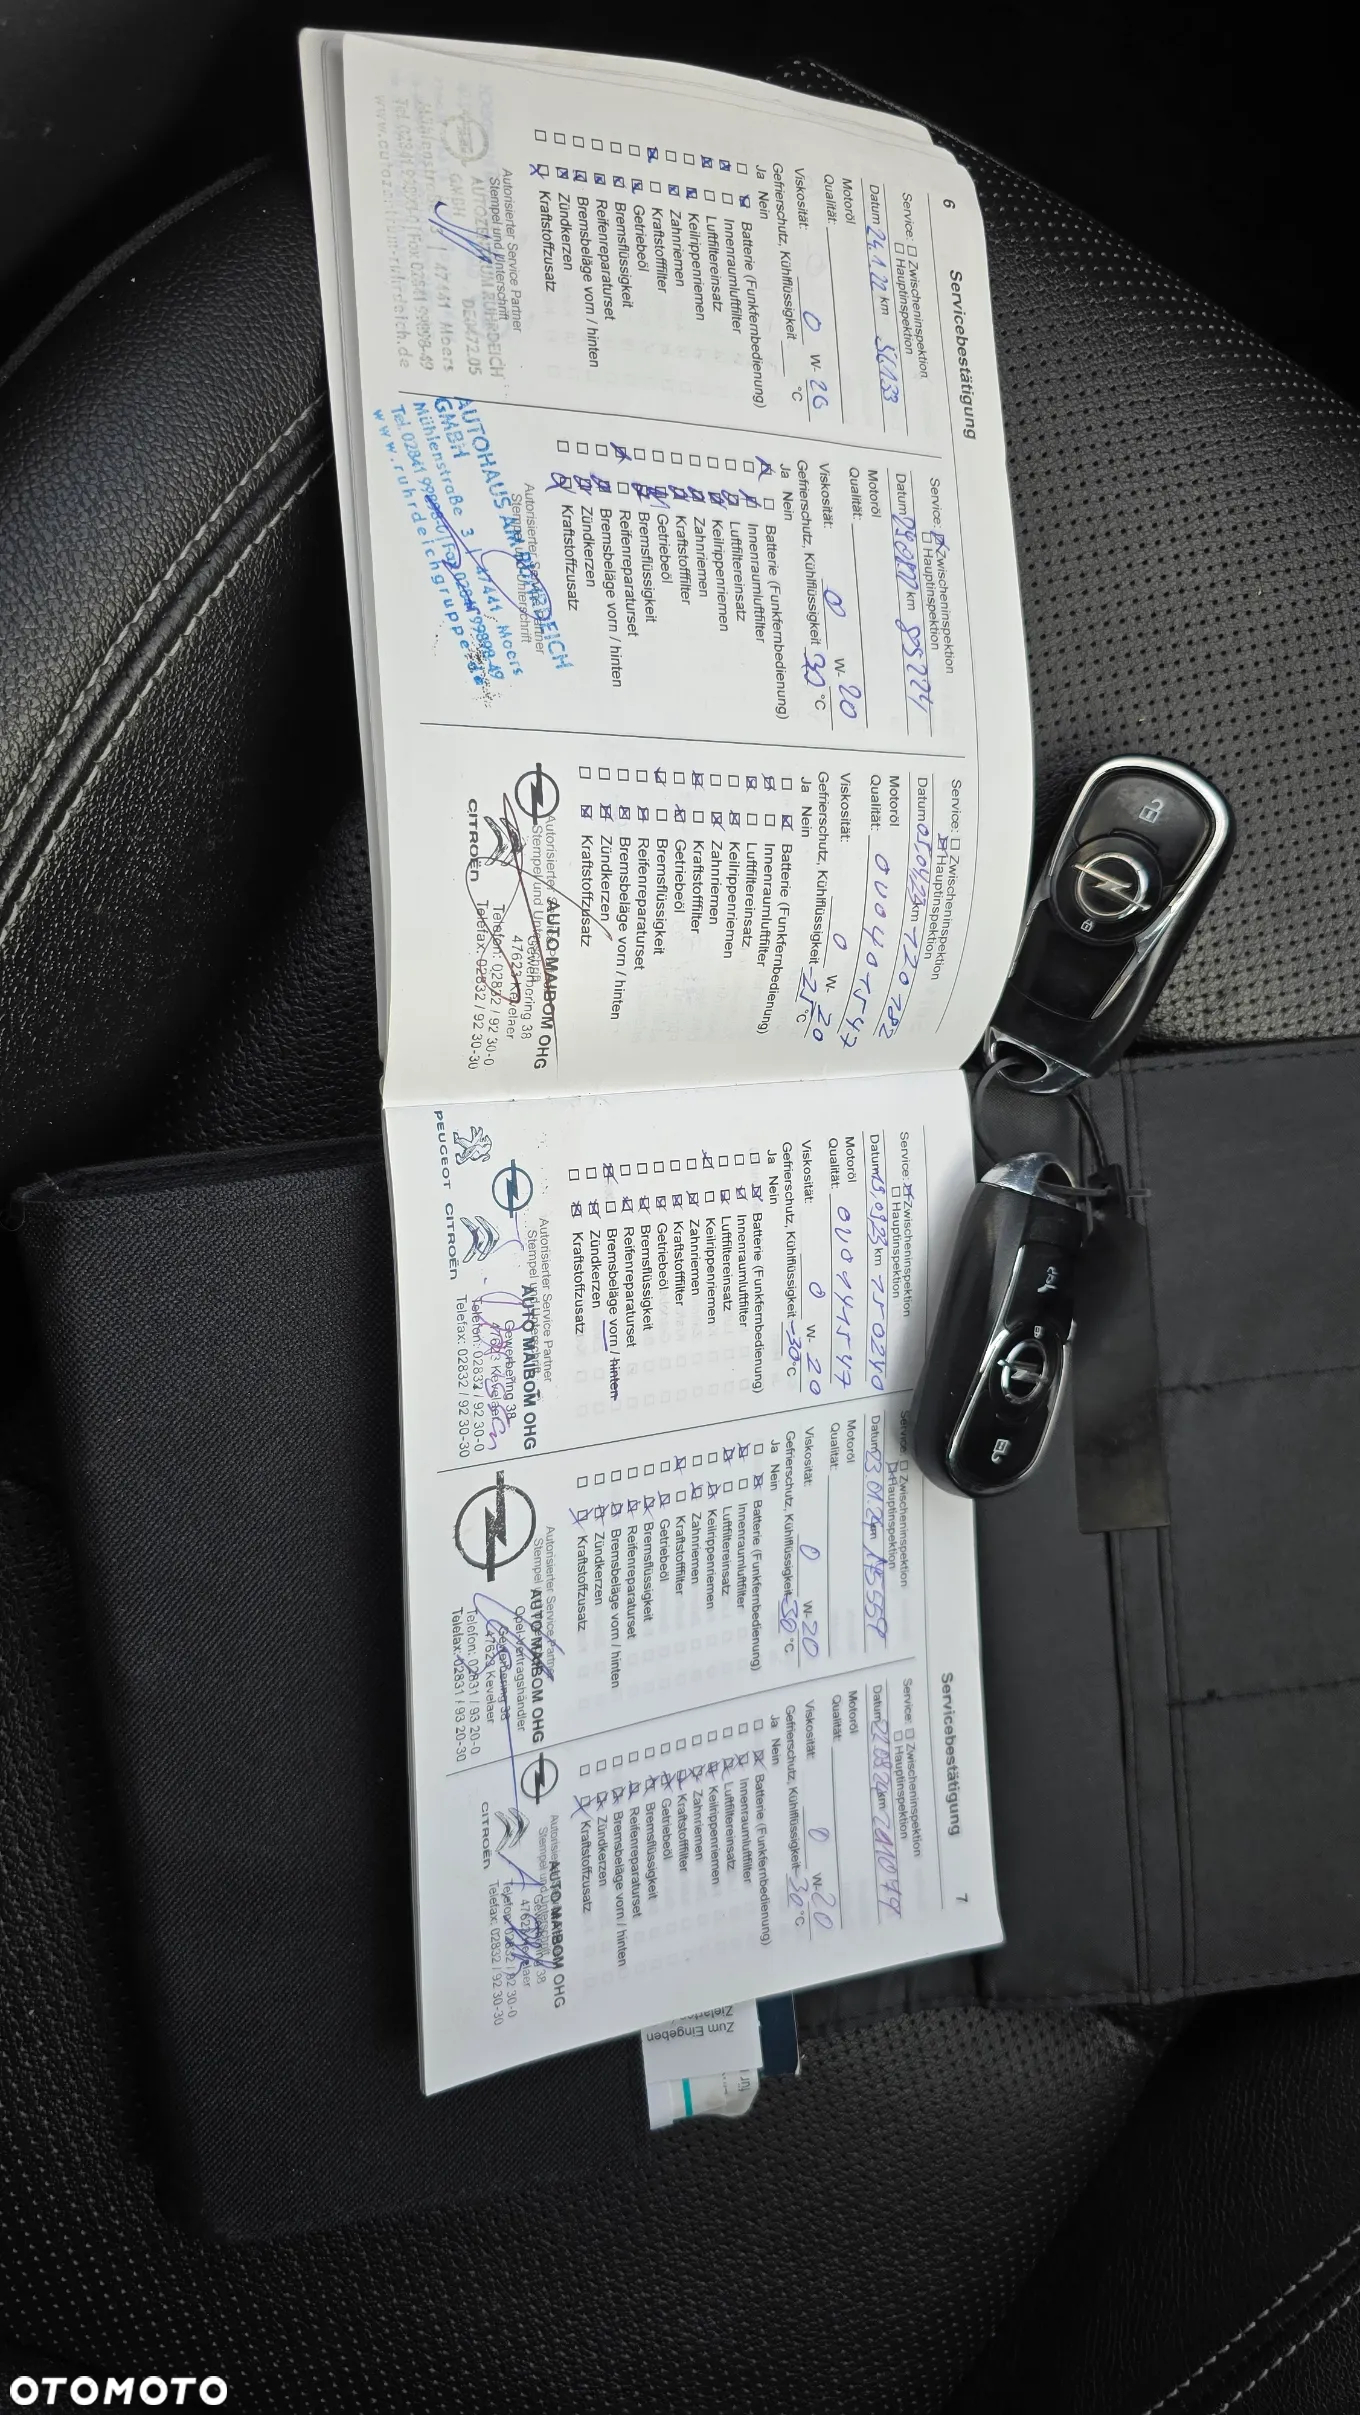 6
Servicebestätigung
Service: Zwischeninspektion
Hauptinspektion
Datum 24.1.22 km 56133
Motoröl
Qualität:
Viskosität: 0 W- 20
Gefrierschutz, Kühlflüssigkeit °C
Ja Nein
Batterie (Funkfernbedienung)
Innenraumluftfilter
Luftfiltereinsatz
Keilrippenriemen
Zahnriemen
Kraftstofffilter
Getriebeöl
Bremsflüssigkeit
Reifenreparaturset
Bremsbeläge vorn / hinten
Zündkerzen
Kraftstoffzusatz
Autorisierter Service Partner
Stempel und Unterschrift
GMBH
47441 Moers
Service: Zwischeninspektion
Hauptinspektion
Datum km
Motoröl
Qualität:
Viskosität: 0 W- 20
Gefrierschutz, Kühlflüssigkeit 30 °C
Ja Nein
Batterie (Funkfernbedienung)
Innenraumluftfilter
Luftfiltereinsatz
Keilrippenriemen
Zahnriemen
Kraftstofffilter
Getriebeöl
Bremsflüssigkeit
Reifenreparaturset
Bremsbeläge vorn / hinten
Zündkerzen
Kraftstoffzusatz
Autorisierter Service Partner
Stempel und Unterschrift
AUTOHAUS AM RUHRDEICH
GMBH
Mühlenstraße 3 47441 Moers
Tel. 02841 99898-0 | Fax 02841 99898-49
www.ruhrdeichgruppe.de
Service: Zwischeninspektion
Hauptinspektion
Datum 05.04.23 km 120 782
Motoröl
Qualität: 0V0401547
Viskosität: 0 W- 20
Gefrierschutz, Kühlflüssigkeit -25 °C
Ja Nein
Batterie (Funkfernbedienung)
Innenraumluftfilter
Luftfiltereinsatz
Keilrippenriemen
Zahnriemen
Kraftstofffilter
Getriebeöl
Bremsflüssigkeit
Reifenreparaturset
Bremsbeläge vorn / hinten
Zündkerzen
Kraftstoffzusatz
Autorisierter Service
Stempel und Unterschrift
AUTO MAIBOM OHG
Gewerbering 38
47623 Kevelaer
Telefon: 02832 / 92 30-0
Telefax: 02832 / 92 30-30
CITROËN
Service: Zwischeninspektion
Hauptinspektion
Datum 19.09.23 km 150240
Motoröl
Qualität: 0V0141547
Viskosität: 0 W- 20
Gefrierschutz, Kühlflüssigkeit -30 °C
Ja Nein
Batterie (Funkfernbedienung)
Innenraumluftfilter
Luftfiltereinsatz
Keilrippenriemen
Zahnriemen
Kraftstofffilter
Getriebeöl
Bremsflüssigkeit
Reifenreparaturset
Bremsbeläge vorn / hinten
Zündkerzen
Kraftstoffzusatz
Autorisierter Service Partner
Stempel und Unterschrift
AUTO MAIBOM OHG
Gewerbering 38
47623 Kevelaer
Telefon: 02832 / 92 30-0
Telefax: 02832 / 92 30-30
PEUGEOT CITROËN
Servicebestätigung
7
Service: Zwischeninspektion
Hauptinspektion
Datum 03.01.24 km
Motoröl
Qualität:
Viskosität: 0 W- 20
Gefrierschutz, Kühlflüssigkeit -30 °C
Ja Nein
Batterie (Funkfernbedienung)
Innenraumluftfilter
Luftfiltereinsatz
Keilrippenriemen
Zahnriemen
Kraftstofffilter
Getriebeöl
Bremsflüssigkeit
Reifenreparaturset
Bremsbeläge vorn / hinten
Zündkerzen
Kraftstoffzusatz
Autorisierter Service Partner
AUTO MAIBOM OHG
Opel-Vertragshändler
Gewerbering 38
47623 Kevelaer
Telefon: 02831 / 93 20-0
Telefax: 02831 / 93 20-30
Service: Zwischeninspektion
Hauptinspektion
Datum 22.08.24 km
Motoröl
Qualität:
Viskosität: 0 W- 20
Gefrierschutz, Kühlflüssigkeit -30 °C
Ja Nein
Batterie (Funkfernbedienung)
Innenraumluftfilter
Luftfiltereinsatz
Keilrippenriemen
Zahnriemen
Kraftstofffilter
Getriebeöl
Bremsflüssigkeit
Reifenreparaturset
Bremsbeläge vorn / hinten
Zündkerzen
Kraftstoffzusatz
AUTO MAIBOM OHG
Gewerbering 38
47623 Kevelaer
Telefon: 02832 / 92 30-0
Telefax: 02832 / 92 30-30
CITROËN
Zum Eingeben
OTOMOTO